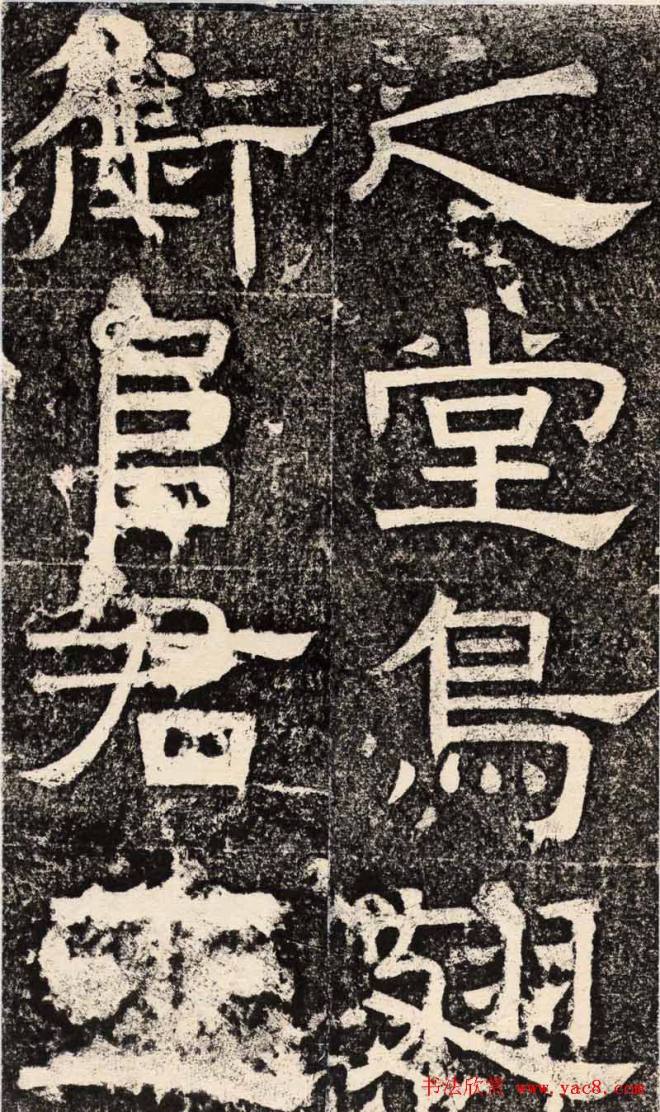 之堂鳥翅
衛阜君
书法欣赏 www.yac8.com